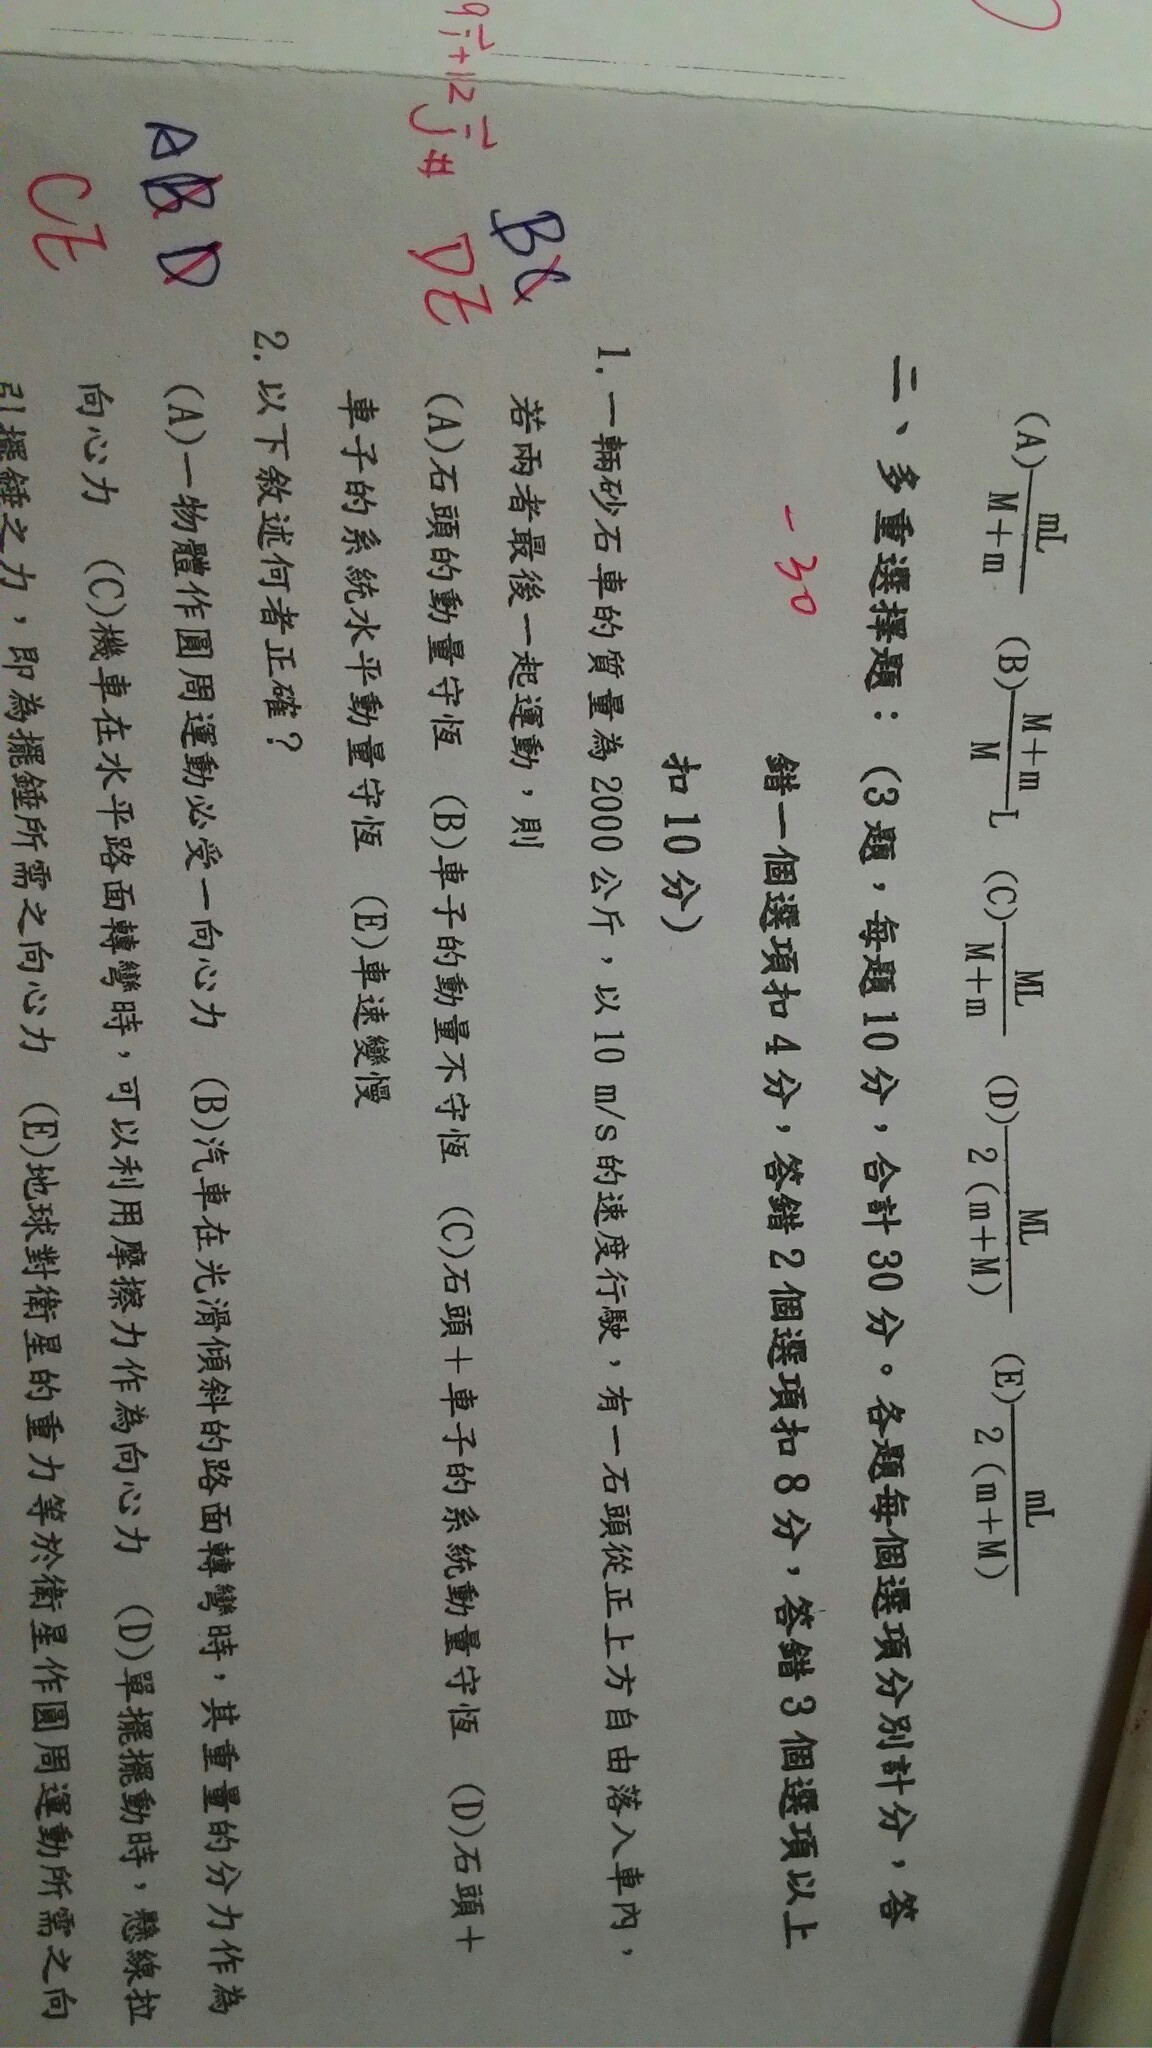 (A) mL/(M+m) (B) (M+m)/M L (C) ML/(M+m) (D) ML/2(m+M) (E) mL/2(m+M)
二、多重選擇題：(3題，每題10分，合計30分。各題每個選項分別計分，答
錯一個選項扣4分，答錯2個選項扣8分，答錯3個選項以上
扣10分)
-30
BC
DE
1. 一輛砂石車的質量為2000公斤，以10 m/s的速度行駛，有一石頭從正上方自由落入車內，
若兩者最後一起運動，則
(A)石頭的動量守恆 (B)車子的動量不守恆 (C)石頭＋車子的系統動量守恆 (D)石頭＋
車子的系統水平動量守恆 (E)車速變慢
9i+12j#
ABD
CE
2. 以下敘述何者正確？
(A)一物體作圓周運動必受一向心力 (B)汽車在光滑傾斜的路面轉彎時，其重量的分力作為
向心力 (C)機車在水平路面轉彎時，可以利用摩擦力作為向心力 (D)單擺擺動時，懸線拉
引擺錘之力，即為擺錘所需之向心力 (E)地球對衛星的重力等於衛星作圓周運動所需之向